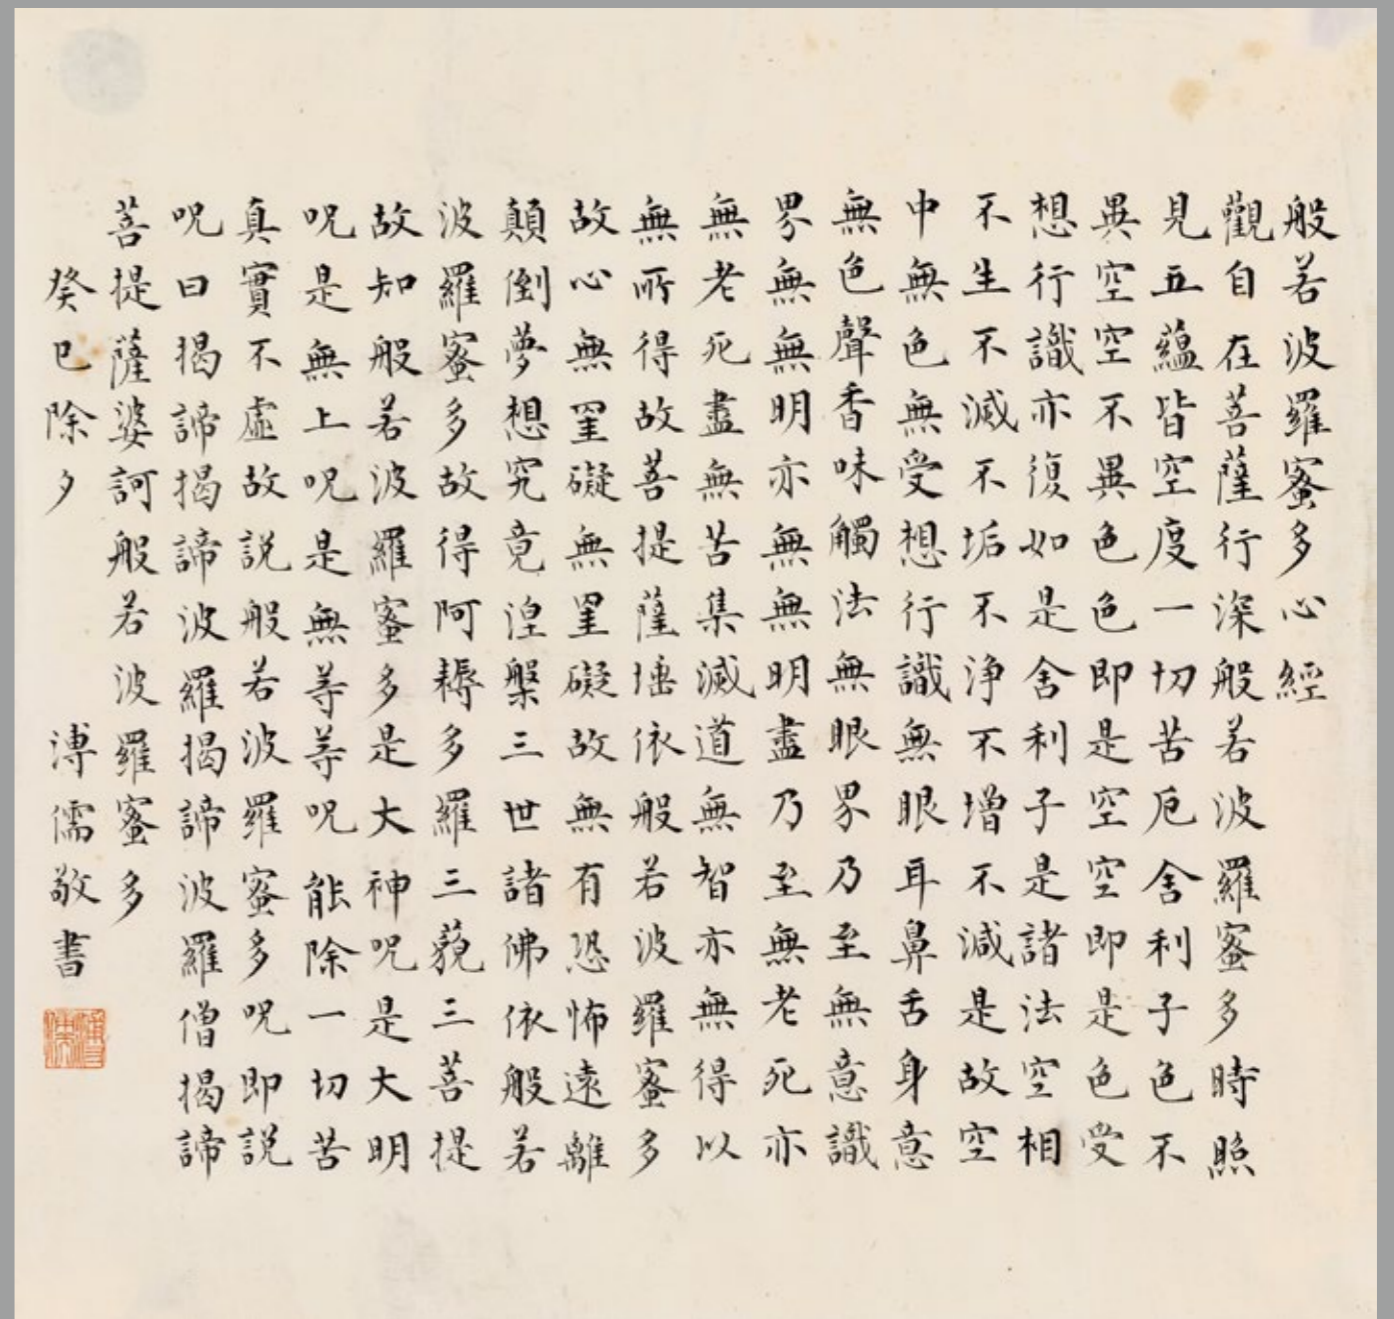 般若波羅蜜多心經
觀自在菩薩行深般若波羅蜜多時照
見五蘊皆空度一切苦厄舍利子色不
異空空不異色色即是空空即是色受
想行識亦復如是舍利子是諸法空相
不生不滅不垢不淨不增不減是故空
中無色無受想行識無眼耳鼻舌身意
無色聲香味觸法無眼界乃至無意識
界無無明亦無無明盡乃至無老死亦
無老死盡無苦集滅道無智亦無得以
無所得故菩提薩埵依般若波羅蜜多
故心無罣礙無罣礙故無有恐怖遠離
顛倒夢想究竟涅槃三世諸佛依般若
波羅蜜多故得阿耨多羅三藐三菩提
故知般若波羅蜜多是大神呪是大明
呪是無上呪是無等等呪能除一切苦
真實不虛故說般若波羅蜜多呪即說
呪曰揭諦揭諦波羅揭諦波羅僧揭諦
菩提薩婆訶般若波羅蜜多
癸巳除夕 溥儒敬書